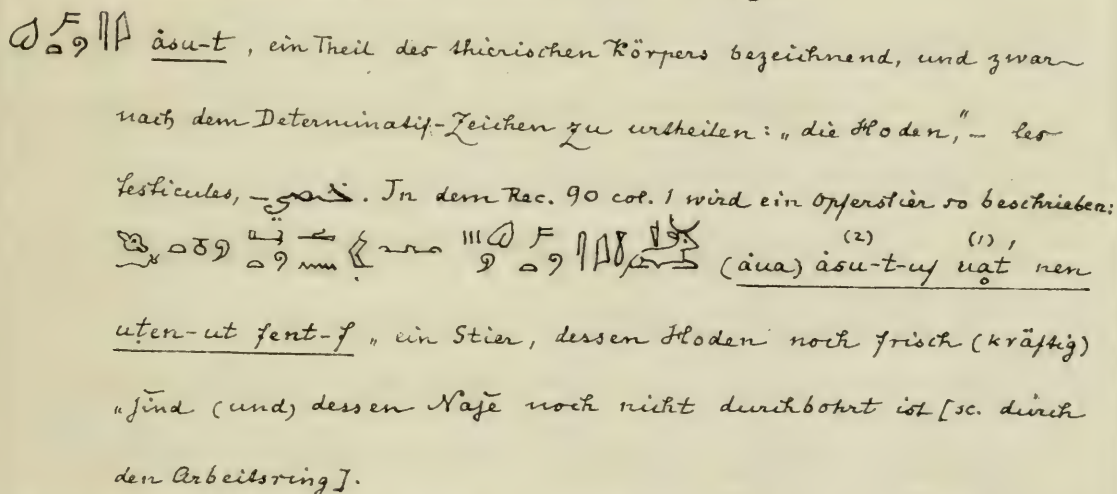 åsu-t, ein Theil des thierischen Körpers bezeichnend, und zwar
nach dem Determinatif-Zeichen zu urtheilen: „die Hoden,"– les
testicules, –. In dem Rec. 90 col. 1 wird ein Opferstier so beschrieben:
(2) (1)
(åua) åsu-t-uf uaṭ nen
uṭen-ut fent-f „ein Stier, dessen Hoden noch frisch (kräftig)
„sind (und) dessen Nase noch nicht durchbohrt ist [sc. durch
den Arbeitsring].